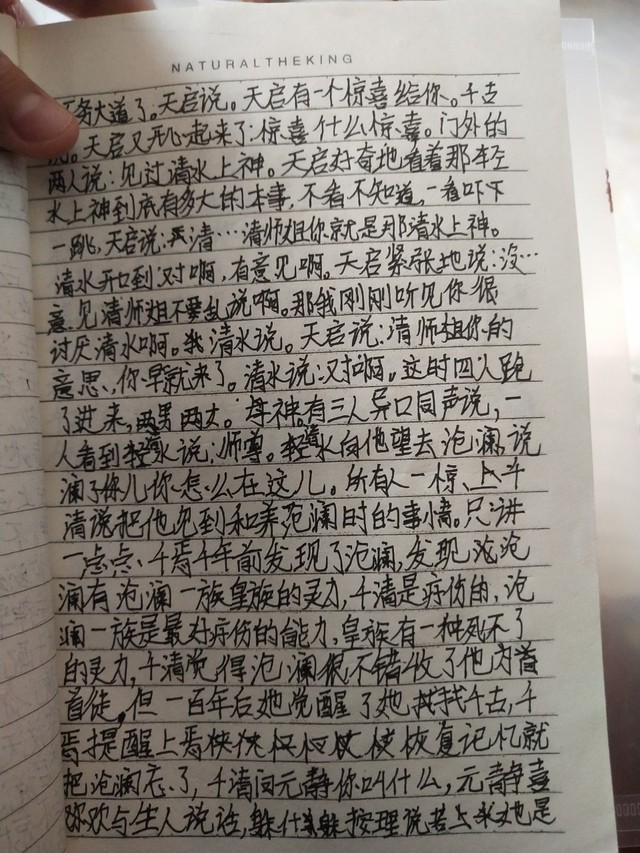 NATURALTHEKING
务大道了。天启说。天启有一个惊喜给你。千古
。天启又开心起来了:惊喜什么惊喜。门外的
两人说:见过清水上神。天启好奇地看着那轻
水上神到底有多大的本事,不看不知道,一看吓下
一跳,天启说:严清…清师姐你就是那清水上神。
清水开口到:对啊,有意见啊。天启紧张地说:没…
意见清师姐不要乱说啊。那我刚刚听见你很
讨厌清水啊。我清水说。天启说:清师姐你的
意思,你早就来了。清水说:对啊。这时四人跑
了进来,两男两女。母神。有三人异口同声说,一
人看到清水说:师尊。清水向他望去沧澜,说
澜了你儿你怎么在这儿。所有人一惊、上千
清说把他见到和养沧澜时的事情。只讲
一点点、千焉千年前发现了沧澜,发现沧沧
澜有沧澜一族皇族的灵力,千清是疗伤的,沧
澜一族是最好疗伤的能力,皇族有一种死不了
的灵力,千清觉得沧澜很不错收了他为首
首徒,但一百年后她觉醒了她找千古,千
焉提醒上焉恢复记忆就
把沧澜忘了,千清问元静你叫什么,元静喜
欢与生人说话,躲什躲按理说若上她是